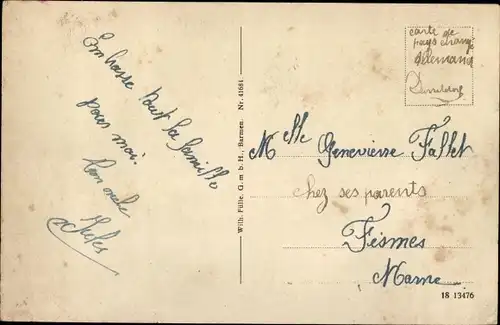 Embrasse tout la famille
pour moi.
Ton oncle
Jules
Wilh. Fülle, G. m. b. H., Barmen. Nr. 41681
carte de
pays étrang
Allemand
Dusseldorf
Melle Genevieve Fallet
chez ses parents
Fismes
Marne
18 13476